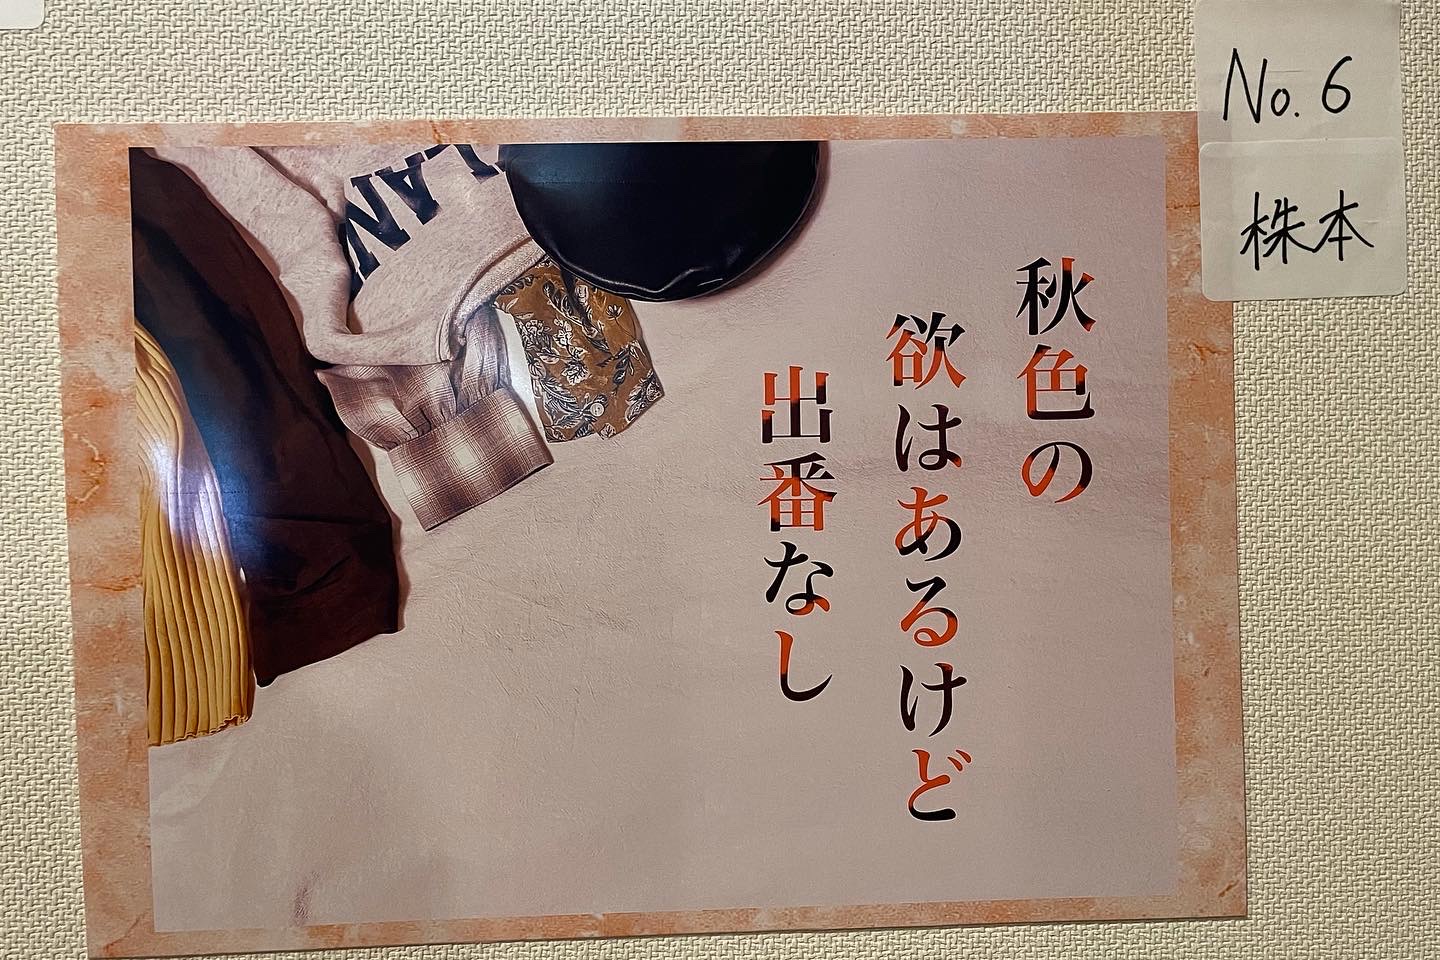 No.6
株本
秋色の
欲はあるけど
出番なし